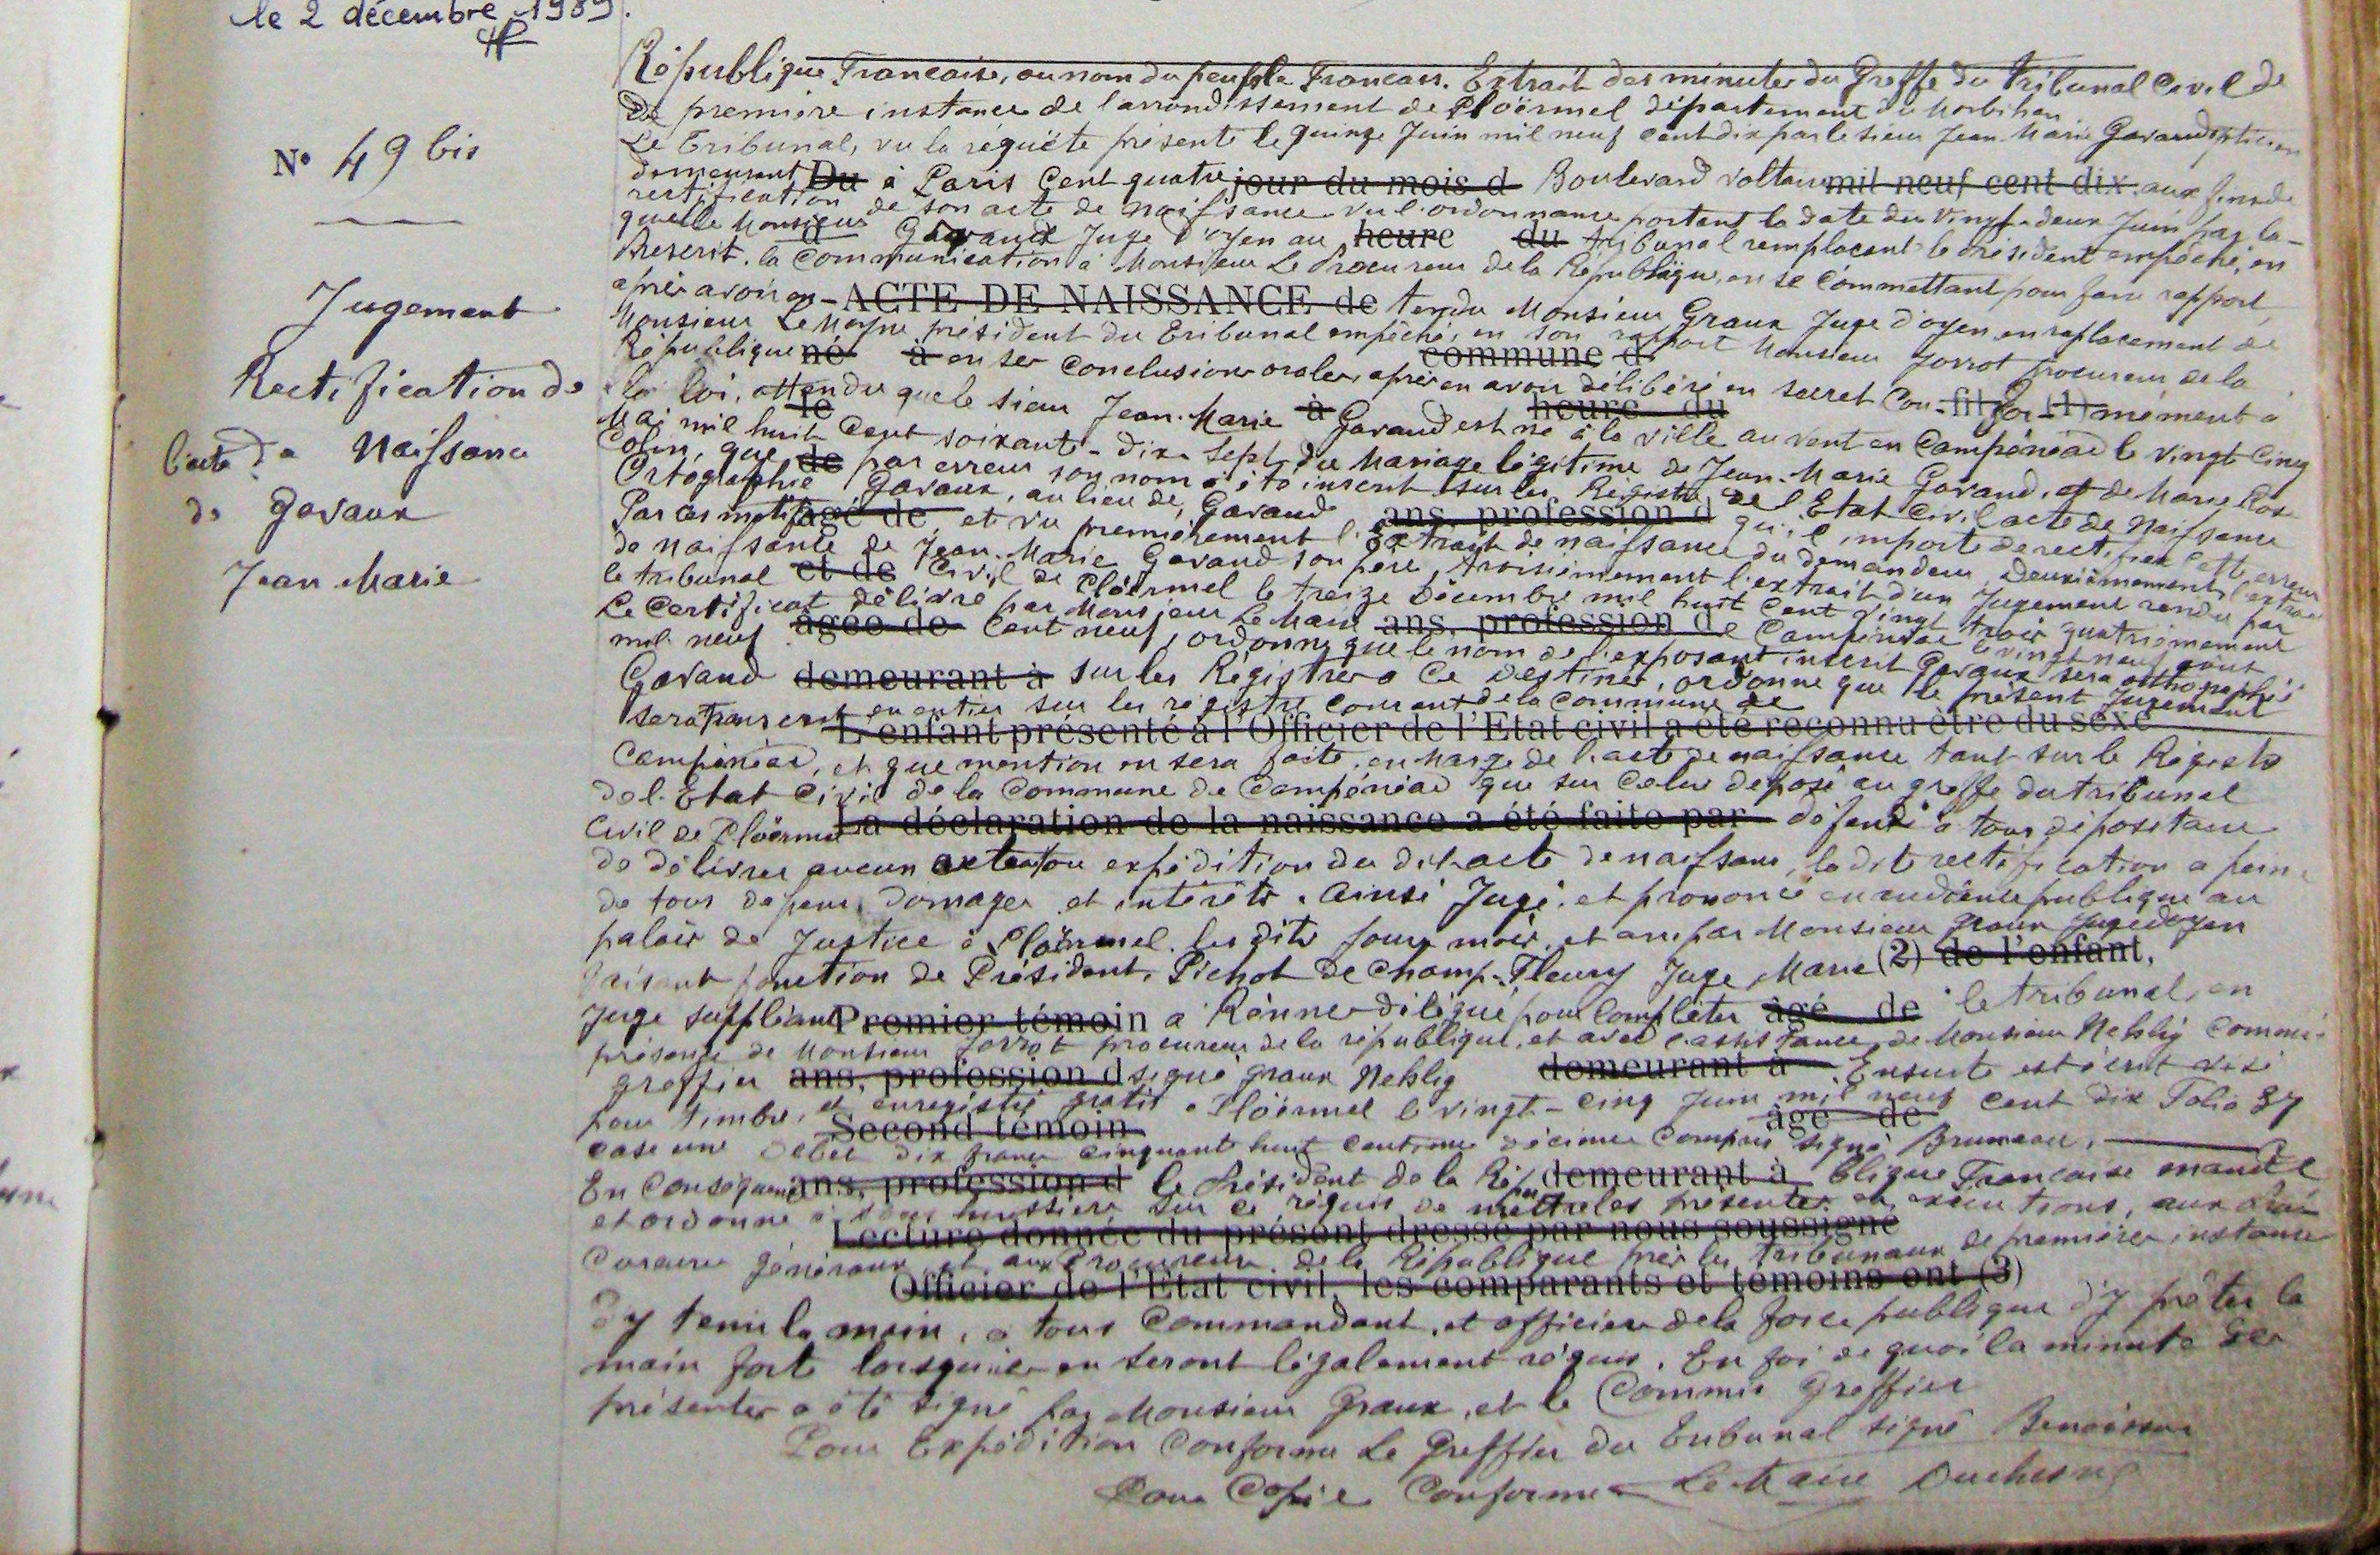 le 2 décembre 1989.
N° 49 bis
Jugement
Rectification de
l'acte de Naissance
de Gavaux
Jean Marie
République Francaise, au nom du peuple Francais. Extrait des minutes du Greffe du Tribunal Civil de
De première instance de l'arrondissement de Ploërmel département du Morbihan
Le Tribunal, vu la réquête présenté le quinze Juin mil neuf cent dix par le sieur Jean Marie Gavaud opticien
demeurant Du à Paris Cent quatre jour du mois d Boulevard Voltaire mil neuf cent dix aux fins de
rectification de son acte de naissance. Vu l'ordonnance portant la date du vingt-deux Juin par la-
quelle Monsieur à Graux Juge d'oyen au heure du tribunal remplacant le président empêché, en
Prescrit la Communication à Monsieur Le Procureur de la République, en se Commettant pour faire rapport,
après avoir en- ACTE DE NAISSANCE de tendu Monsieur Graux Juge d'oyen en raplacement de
Monsieur Le Moyne président du Tribunal empêché, en son rapport Monsieur Jorrot procureur de la
République né à en ses Conclusions orales, après en avoir délibéré en secret commune d
la loi, attendu que le sieur Jean-Marie à Gavaud est né à la ville au vent en Campénéac le vingt cinq
Mai mil huit Cent soixante-dix-sept, du Mariage légitime de Jean-Marie Gavaud, et de Marie Rose
Colin, que de par erreur son nom a été inscrit sur les Régistre de l'Etat Civil acte de Naissance
Ortographié Gavaux, au lieu de, Gavaud ans, profession d qu'il importe de rectifier cette erreur
Par ces motifs âgé de et vu premièrement l'extrait de naissance du demandeur, Deuxièmement l'extrait
de naissance de Jean-Marie Gavaud son père, troisièmement l'extrait d'un Jugement rendu par
le tribunal et de Civil de Ploërmel le treize Décembre mil huit Cent vingt trois quatrièmement
Le Certificat délivré par Monsieur Le Maire ans, profession d de Campénéac le vingt neuf août
mil neuf âgée de Cent neuf, ordonne que le nom de l'exposant inscrit Gavaux sera orthographié
Gavaud demeurant à sur les Régistres a Ce Destinés, ordonne que le présent Jugement
sera transcrit en entier sur les régistre courant de la commune de
L'enfant présenté à l'Officier de l'Etat civil a été reconnu être du sexe
Campénéac, et que mention en sera faite, en Marge de l'acte de naissance tant sur le Régistre
de l'Etat Civil de la Commune de Campénéac que sur Celui déposé au greffe du tribunal
Civil de Ploërmel La déclaration de la naissance a été faite par défend à tous dépositaire
de délivrer aucun extrait ou expédition du dit acte de naissance, ladite rectification a peine
de tous dépens, Domages et intérêts. Ainsi Jugé, et prononcé en audience publique au
palais de Justice à Ploërmel. les dits jour, mois, et an par Monsieur Graux Juge doyen
Faisant fonction de Président, Pichot de Champ-Fleury Juge, Marie (2) de l'enfant,
Juge suppléant Premier témoin a Rennes Délégué pour Compléter âgé de le tribunal, en
présence de Monsieur Jorrot procureur de la république, et avec l'assistance de Monsieur Nehlig Commis
greffier ans, profession d signé Graux Nehlig demeurant à Ensuite est écrit visé
pour timbre, et enregistré gratis à Ploërmel le vingt-cinq Juin mil neuf cent dix Folio 37
Second témoin âgé de
case une Débet dix francs cinquante huit centimes décimes Compris signé Bruneau.
En Conséquence ans, profession d le Président de la Répu demeurant à blique Francaise mande
et ordonne à tous huissiers sur ce réquis de mettre les présentes en exécutions, aux Pro
Lecture donnée du présent dressé par nous soussigné
cureurs généraux et aux Procureurs de la République près les tribunaux de première instance
Officier de l'Etat civil, les comparants et témoins ont (3)
d'y tenir la main, a tous Commandant, et officiers de la force publique d'y prêter la
main fort lorsqu'ils en seront légalement réquis. En foi de quoi la minute des
présentes a été signé par Monsieur Graux, et le Commis Greffier
Pour Expédition Conforme Le Greffier du Tribunal signé
Pour Copie Conforme Le Maire Duchesne